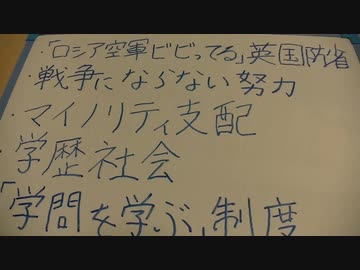 ・「ロシア空軍ビビってる」英国防省
・戦争にならない努力
・マイノリティ支配
・学歴社会
「学問を学ぶ」制度